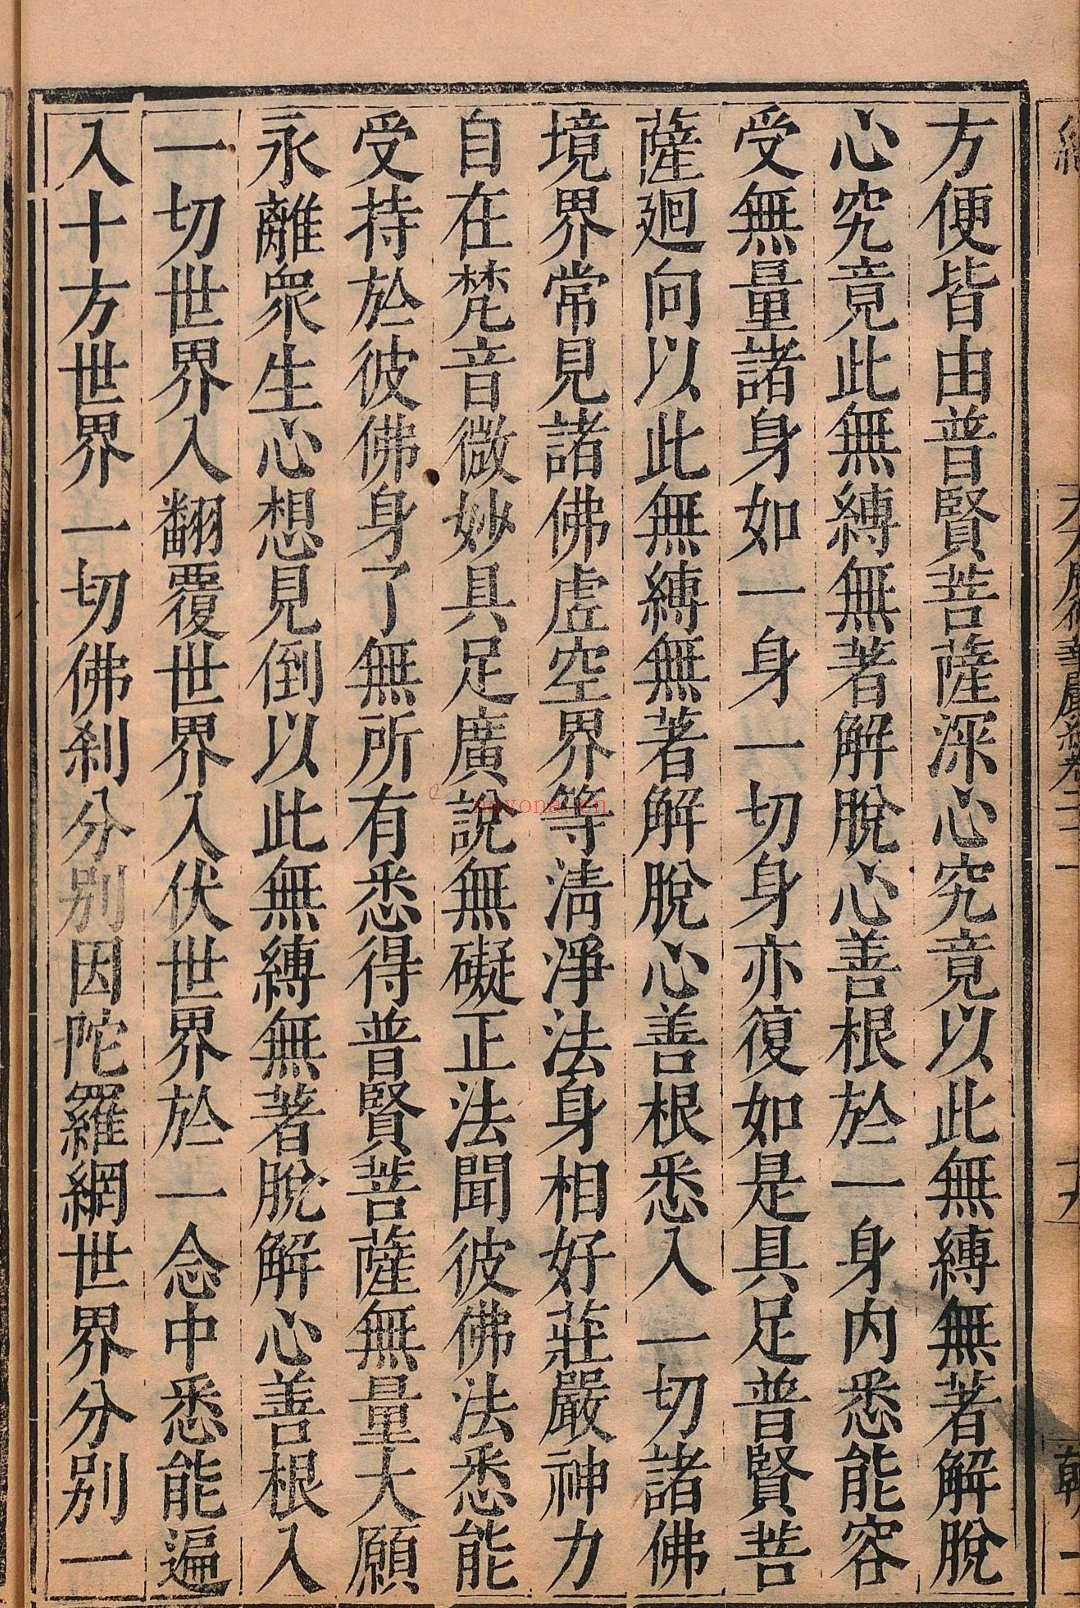 方便皆由普賢菩薩深心究竟以此無縛無著解脫
心究竟此無縛無著解脫心善根於一身內悉能容
受無量諸身如一身一切身亦復如是具足普賢菩
薩廻向以此無縛無著解脫心善根悉入一切諸佛
境界常見諸佛虛空界等清淨法身相好莊嚴神力
自在梵音微妙具足廣說無礙正法聞彼佛法悉能
受持於彼佛身了無所有悉得普賢菩薩無量大願
永離眾生心想見倒以此無縛無著脫解心善根入
一切世界入翻覆世界入伏世界於一念中悉能遍
入十方世界一切佛刹分別因陀羅網世界分別一